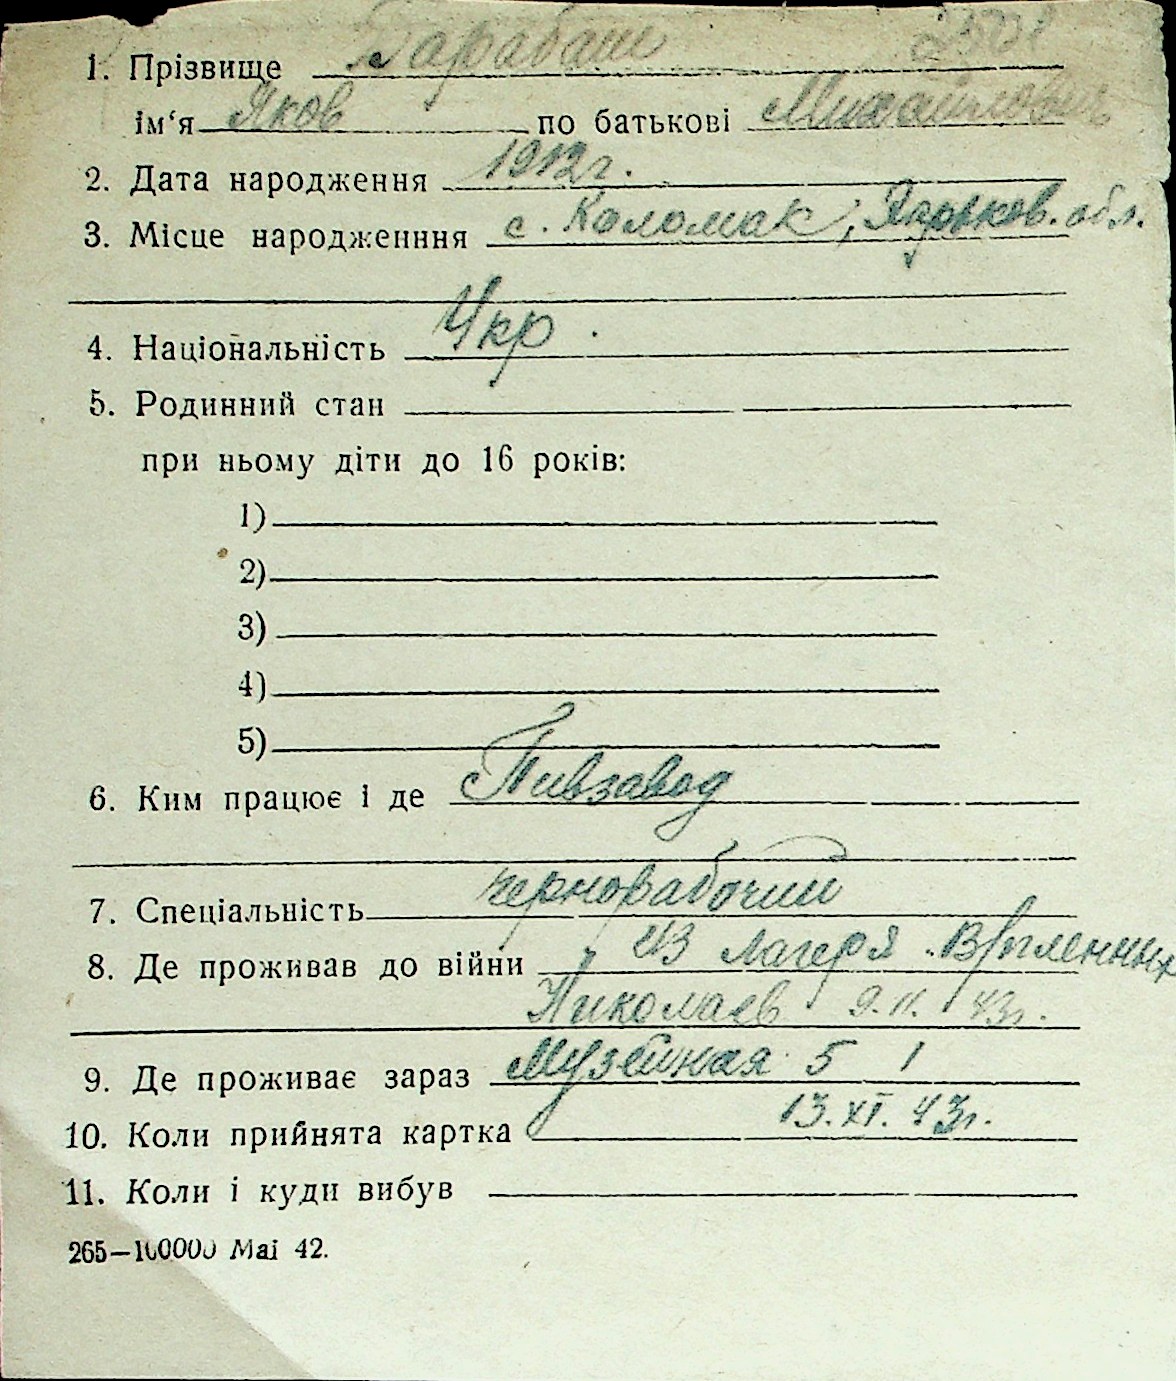 1. Прізвище Барабаш
ім‘я Яков по батькові Михайлович
2. Дата народження 1912 г.
3. Місце народженння с. Коломак, Харьков. обл.
4. Національність Укр.
5. Родинний стан
при ньому діти до 16 років:
1)
2)
3)
4)
5)
6. Ким працює і де Пивзавод
7. Спеціальність чернорабочий
8. Де проживав до війни из лагеря
Николаев 9.11. 43 г.
9. Де проживає зараз Музейная 5 1
10. Коли прийнята картка 13. XI. 43 г.
11. Коли і куди вибув
265—100000 Mai 42.